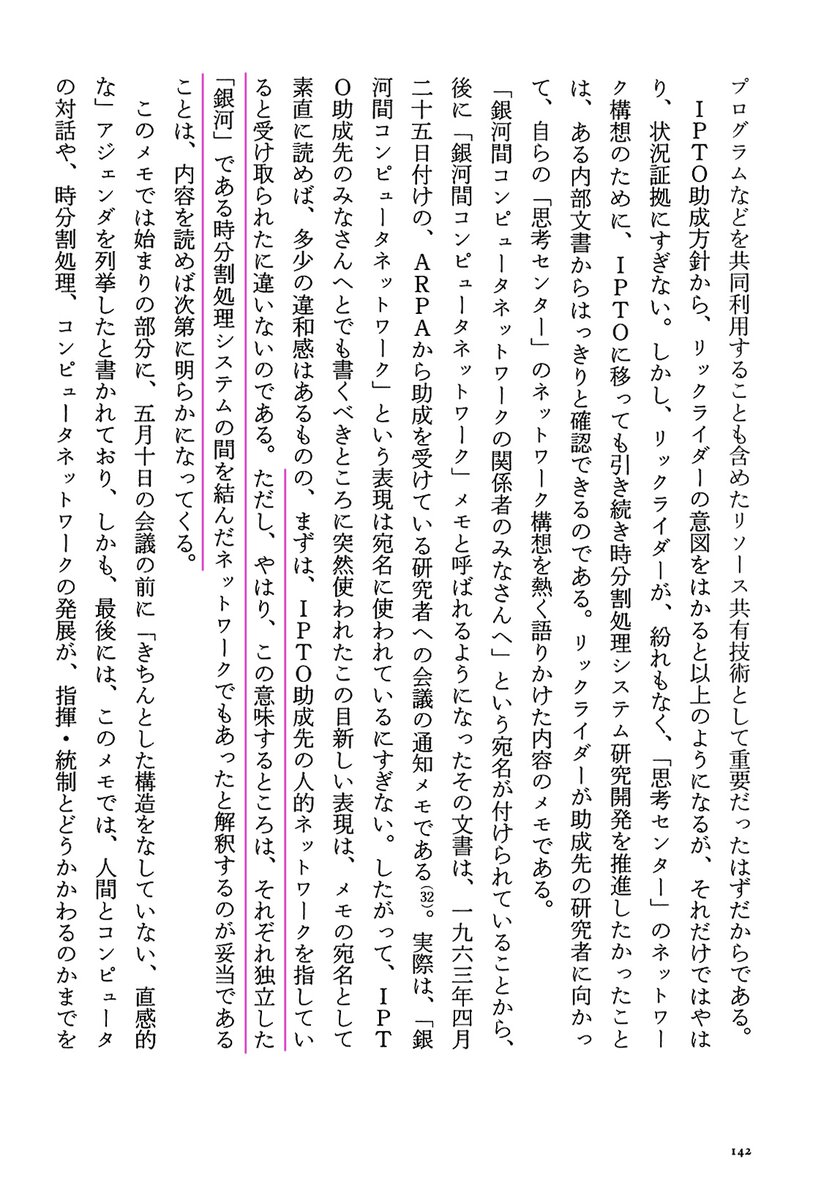 プログラムなどを共同利用することも含めたリソース共有技術として重要だったはずだからである。
　ＩＰＴＯ助成方針から、リックライダーの意図をはかると以上のようになるが、それだけではやは
り、状況証拠にすぎない。しかし、リックライダーが、紛れもなく、「思考センター」のネットワー
ク構想のために、ＩＰＴＯに移っても引き続き時分割処理システム研究開発を推進したかったこと
は、ある内部文書からはっきりと確認できるのである。リックライダーが助成先の研究者に向かっ
て、自らの「思考センター」のネットワーク構想を熱く語りかけた内容のメモである。
「銀河間コンピュータネットワークの関係者のみなさんへ」という宛名が付けられていることから、
後に「銀河間コンピュータネットワーク」メモと呼ばれるようになったその文書は、一九六三年四月
二十五日付けの、ＡＲＰＡから助成を受けている研究者への会議の通知メモである(32)。実際は、「銀
河間コンピュータネットワーク」という表現は宛名に使われているにすぎない。したがって、ＩＰＴ
Ｏ助成先のみなさんへとでも書くべきところに突然使われたこの目新しい表現は、メモの宛名として
素直に読めば、多少の違和感はあるものの、まずは、ＩＰＴＯ助成先の人的ネットワークを指してい
ると受け取られたに違いないのである。ただし、やはり、この意味するところは、それぞれ独立した
「銀河」である時分割処理システムの間を結んだネットワークでもあったと解釈するのが妥当である
ことは、内容を読めば次第に明らかになってくる。
　このメモでは始まりの部分に、五月十日の会議の前に「きちんとした構造をなしていない、直感的
な」アジェンダを列挙したと書かれており、しかも、最後には、このメモでは、人間とコンピュータ
の対話や、時分割処理、コンピュータネットワークの発展が、指揮・統制とどうかかわるのかまでを
142